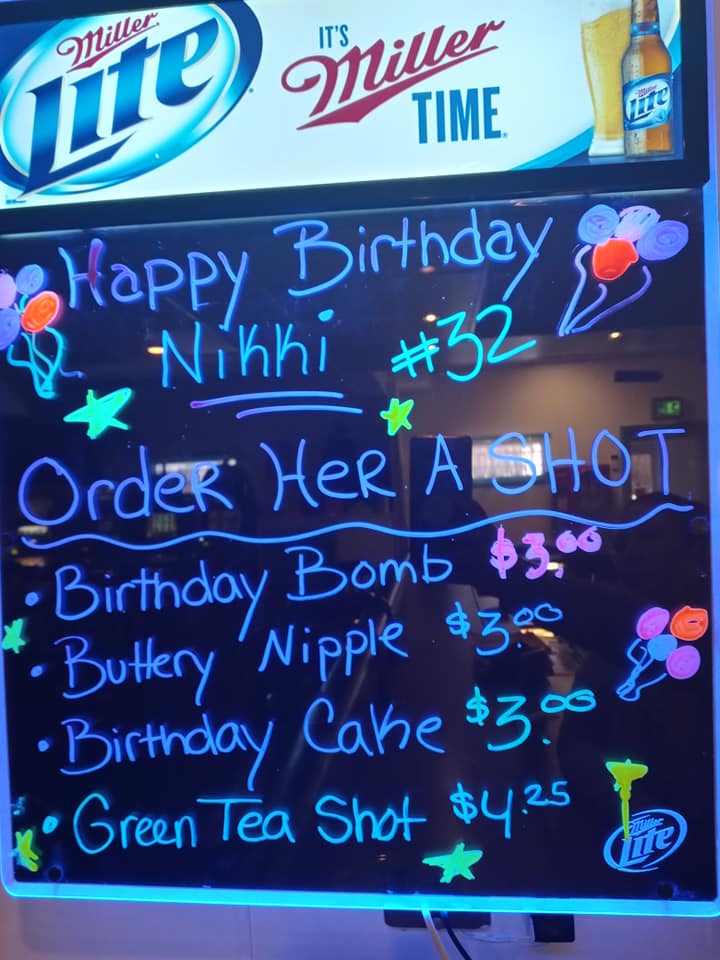 Miller
Lite
IT'S
Miller
TIME
Miller
Lite
Happy Birthday
Nikki #32
Order Her A SHOT
• Birthday Bomb $3.00
• Buttery Nipple $3.00
• Birthday Cake $3.00
• Green Tea Shot $4.25
Miller
Lite